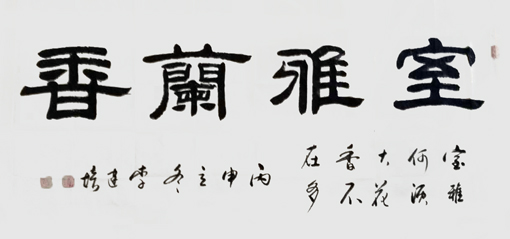 室雅蘭香
室雅
何須
大花
香不
在多
丙申立冬李建